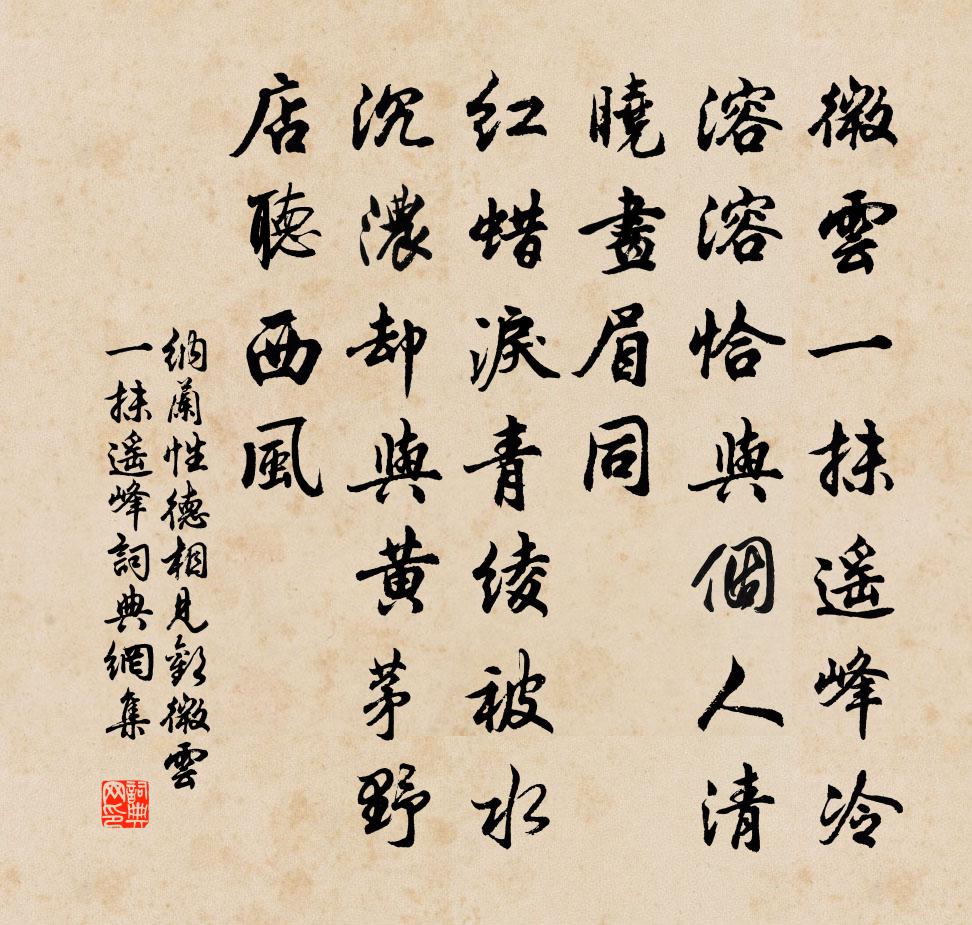 微雲一抹遥峰冷
溶溶恰與個人清
曉畫眉同
红蜡淚青绫被水
沉濃却與黄茅野
店聽西風
纳蘭性德相見歡微雲
一抹遥峰詞典網集
詞典
网印